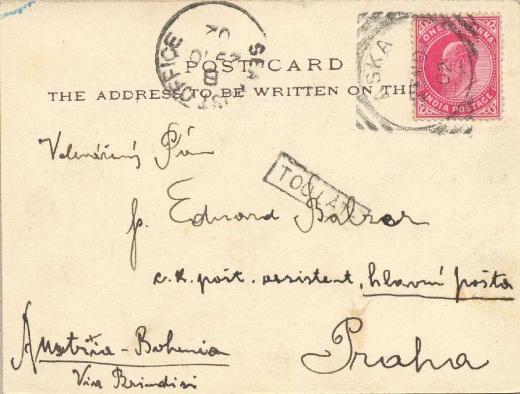 POST CARD
THE ADDRESS TO BE WRITTEN ON TH
SEA POST OFFICE
B
ASKA
02
ONE ANNA
INDIA POSTAGE
TOO LATE
Velevážený Pán
p. Eduard Balzar
c.k. pošt. assistent, hlavní pošta
Praha
Austria - Bohemia
Via Brindisi